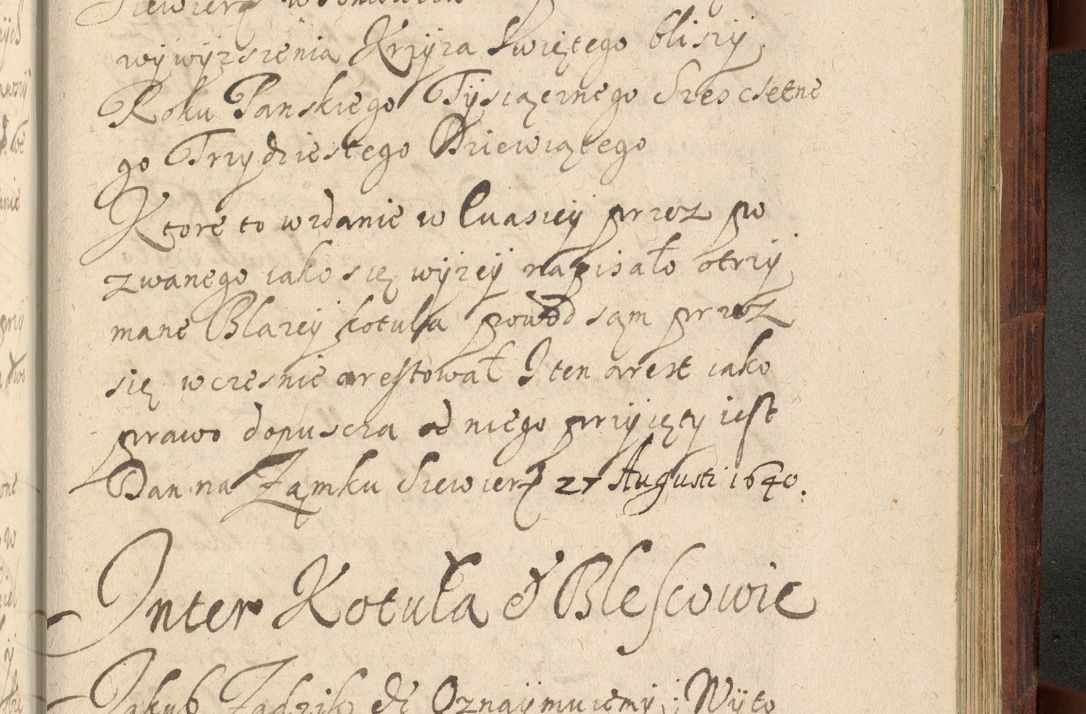 wywyzszenia Krzyza Swiętego blisży
Roku Panskiego Tysiącznego Szescsetne
go Trzydziestego Dziewiątego
Ktore to wzdanie w kwasiey przez po
zwanego iako się wyżey napisało otrzy
mane Blazey Kotuła powod sam przez
się wczesnie arestował I ten arest iako
prawo dopuscza od niego przyięty iest
Dan na Zamku Siewierz 27 Augusti 1640.
Inter Kotuła & Blescowic
Jakub Zadzik &c Oznaymuiemy; Wyto